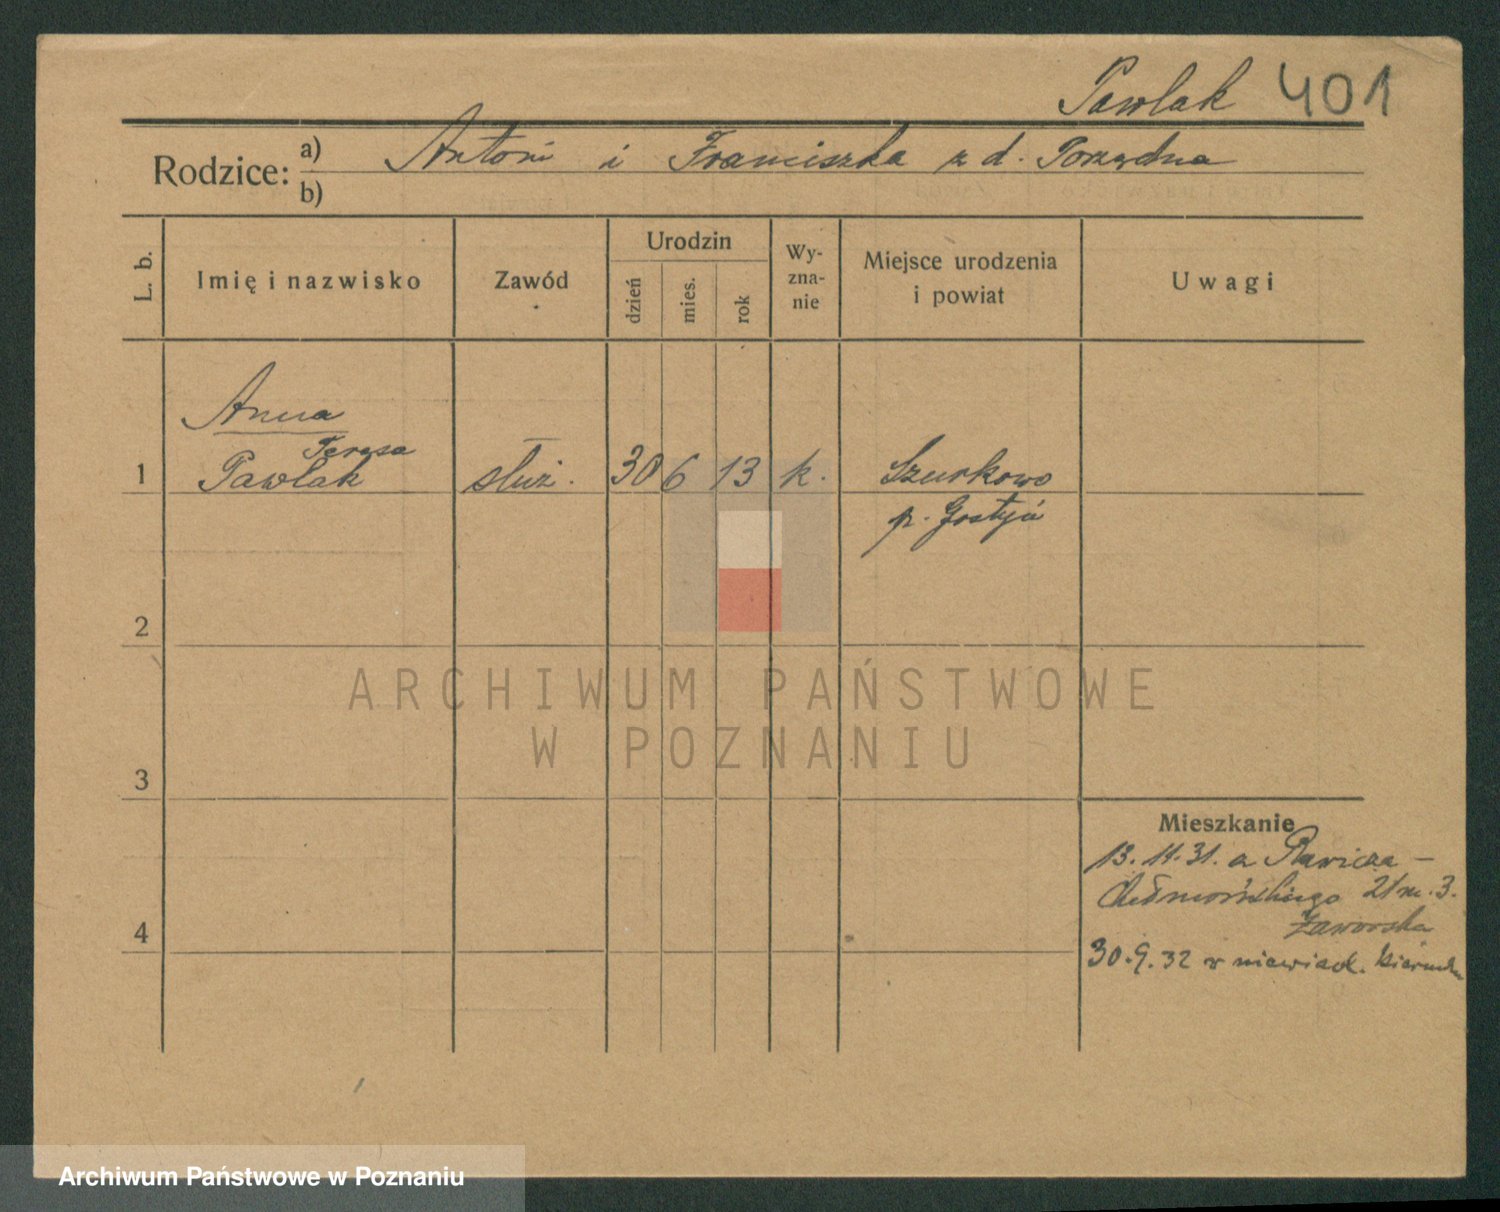 Pawlak 401
Rodzice: a) Antoni i Franciszka z d. Porządna
b)
L. b.
Imię i nazwisko
Zawód
Urodzin
dzień
mies.
rok
Wy-
zna-
nie
Miejsce urodzenia
i powiat
Uwagi
Anna
Teresa
1 Pawlak służ. 30 6 13 k. Szurkowo
p. Gostyń
2
ARCHIWUM PAŃSTWOWE
W POZNANIU
3
Mieszkanie
13. 11. 31. z Rawicza –
Chełmońskiego 21 m. 3.
Zaworska
4
30. 9. 32 w niewiad. kierunku
Archiwum Państwowe w Poznaniu